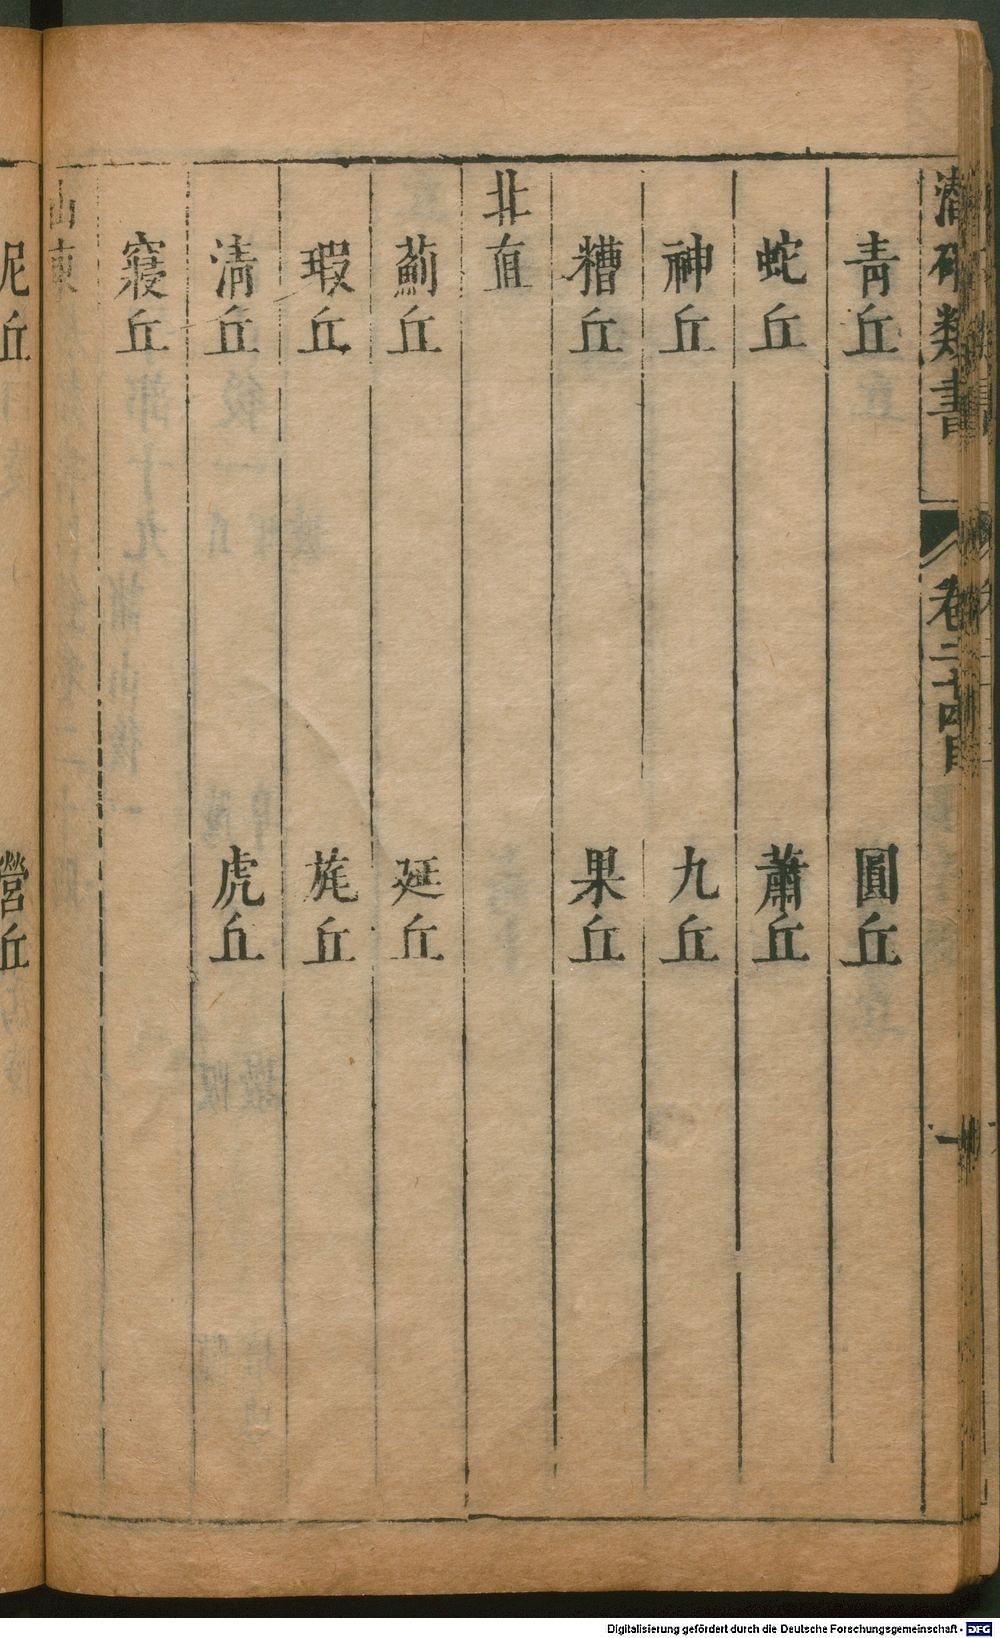 潛確類書 卷二十四目 一
青丘 圓丘
蛇丘 蕭丘
神丘 九丘
糟丘 果丘
北直
薊丘 延丘
瑕丘 旄丘
清丘 虎丘
寢丘
山東
泥丘 營丘
Digitalisierung gefördert durch die Deutsche Forschungsgemeinschaft - DFG